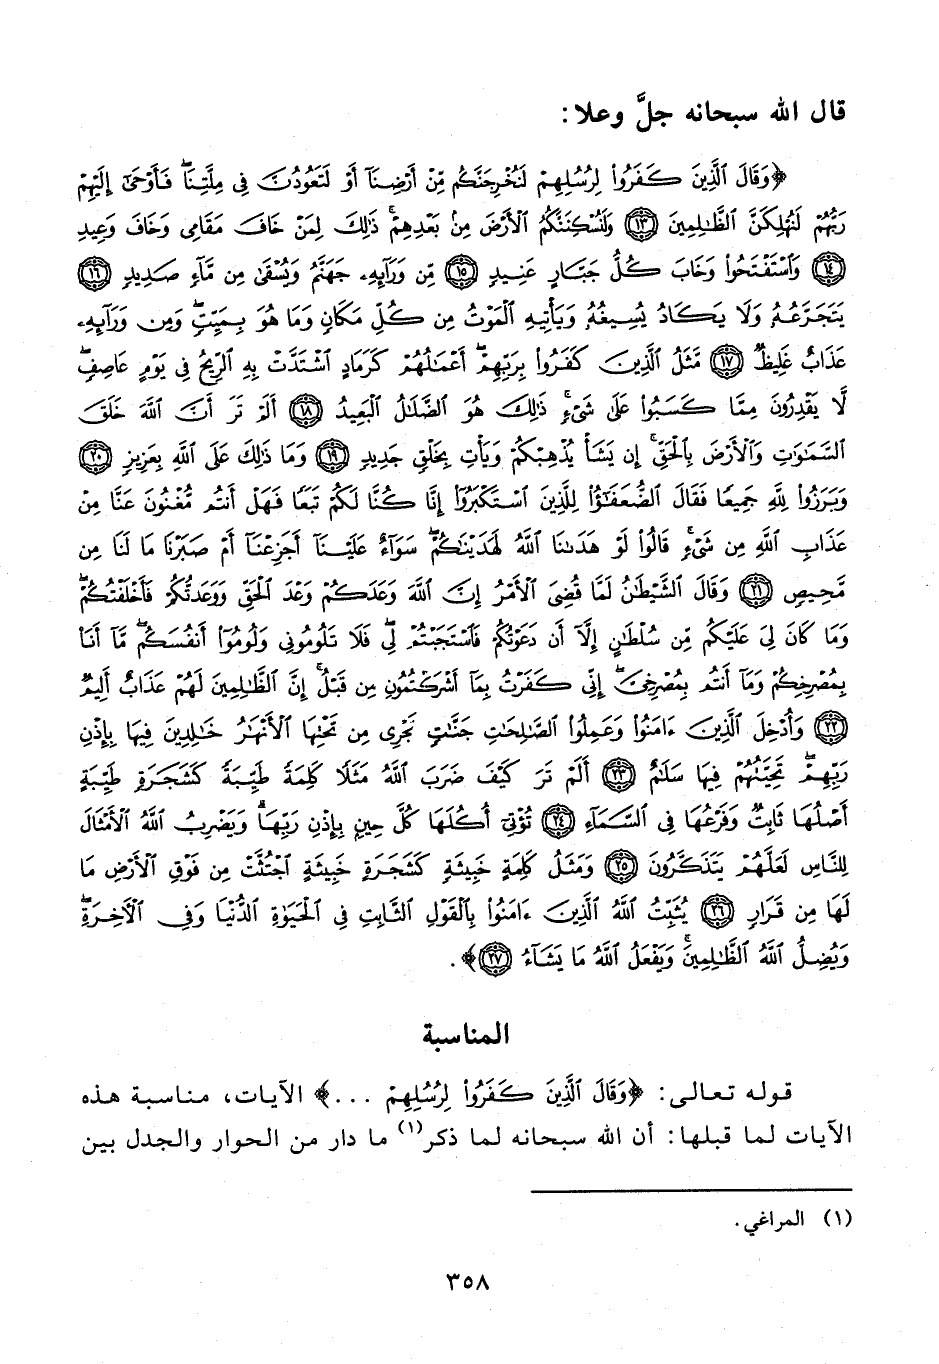 قال الله سبحانه جلَّ وعلا:
﴿وَقَالَ ٱلَّذِينَ كَفَرُوا۟ لِرُسُلِهِمْ لَنُخْرِجَنَّكُم مِّنْ أَرْضِنَآ أَوْ لَتَعُودُنَّ فِى مِلَّتِنَا ۖ فَأَوْحَىٰٓ إِلَيْهِمْ
رَبُّهُمْ لَنُهْلِكَنَّ ٱلظَّٰلِمِينَ ١٣ وَلَنُسْكِنَنَّكُمُ ٱلْأَرْضَ مِنۢ بَعْدِهِمْ ۚ ذَٰلِكَ لِمَنْ خَافَ مَقَامِى وَخَافَ وَعِيدِ
١٤ وَٱسْتَفْتَحُوا۟ وَخَابَ كُلُّ جَبَّارٍ عَنِيدٍ ١٥ مِّن وَرَآئِهِۦ جَهَنَّمُ وَيُسْقَىٰ مِن مَّآءٍ صَدِيدٍ ١٦
يَتَجَرَّعُهُۥ وَلَا يَكَادُ يُسِيغُهُۥ وَيَأْتِيهِ ٱلْمَوْتُ مِن كُلِّ مَكَانٍ وَمَا هُوَ بِمَيِّتٍ ۖ وَمِن وَرَآئِهِۦ
عَذَابٌ غَلِيظٌ ١٧ مَّثَلُ ٱلَّذِينَ كَفَرُوا۟ بِرَبِّهِمْ ۖ أَعْمَٰلُهُمْ كَرَمَادٍ ٱشْتَدَّتْ بِهِ ٱلرِّيحُ فِى يَوْمٍ عَاصِفٍ ۖ
لَّا يَقْدِرُونَ مِمَّا كَسَبُوا۟ عَلَىٰ شَىْءٍ ۚ ذَٰلِكَ هُوَ ٱلضَّلَٰلُ ٱلْبَعِيدُ ١٨ أَلَمْ تَرَ أَنَّ ٱللَّهَ خَلَقَ
ٱلسَّمَٰوَٰتِ وَٱلْأَرْضَ بِٱلْحَقِّ ۚ إِن يَشَأْ يُذْهِبْكُمْ وَيَأْتِ بِخَلْقٍ جَدِيدٍ ١٩ وَمَا ذَٰلِكَ عَلَى ٱللَّهِ بِعَزِيزٍ ٢٠
وَبَرَزُوا۟ لِلَّهِ جَمِيعًا فَقَالَ ٱلضُّعَفَٰٓؤُا۟ لِلَّذِينَ ٱسْتَكْبَرُوٓا۟ إِنَّا كُنَّا لَكُمْ تَبَعًا فَهَلْ أَنتُم مُّغْنُونَ عَنَّا مِنْ
عَذَابِ ٱللَّهِ مِن شَىْءٍ ۚ قَالُوا۟ لَوْ هَدَىٰنَا ٱللَّهُ لَهَدَيْنَٰكُمْ ۖ سَوَآءٌ عَلَيْنَآ أَجَزِعْنَآ أَمْ صَبَرْنَا مَا لَنَا مِن
مَّحِيصٍ ٢١ وَقَالَ ٱلشَّيْطَٰنُ لَمَّا قُضِىَ ٱلْأَمْرُ إِنَّ ٱللَّهَ وَعَدَكُمْ وَعْدَ ٱلْحَقِّ وَوَعَدتُّكُمْ فَأَخْلَفْتُكُمْ ۖ
وَمَا كَانَ لِىَ عَلَيْكُم مِّن سُلْطَٰنٍ إِلَّآ أَن دَعَوْتُكُمْ فَٱسْتَجَبْتُمْ لِى ۖ فَلَا تَلُومُونِى وَلُومُوٓا۟ أَنفُسَكُم ۖ مَّآ أَنَا۠
بِمُصْرِخِكُمْ وَمَآ أَنتُم بِمُصْرِخِىَّ ۖ إِنِّى كَفَرْتُ بِمَآ أَشْرَكْتُمُونِ مِن قَبْلُ ۗ إِنَّ ٱلظَّٰلِمِينَ لَهُمْ عَذَابٌ أَلِيمٌ
٢٢ وَأُدْخِلَ ٱلَّذِينَ ءَامَنُوا۟ وَعَمِلُوا۟ ٱلصَّٰلِحَٰتِ جَنَّٰتٍ تَجْرِى مِن تَحْتِهَا ٱلْأَنْهَٰرُ خَٰلِدِينَ فِيهَا بِإِذْنِ
رَبِّهِمْ ۖ تَحِيَّتُهُمْ فِيهَا سَلَٰمٌ ٢٣ أَلَمْ تَرَ كَيْفَ ضَرَبَ ٱللَّهُ مَثَلًا كَلِمَةً طَيِّبَةً كَشَجَرَةٍ طَيِّبَةٍ
أَصْلُهَا ثَابِتٌ وَفَرْعُهَا فِى ٱلسَّمَآءِ ٢٤ تُؤْتِىٓ أُكُلَهَا كُلَّ حِينٍۭ بِإِذْنِ رَبِّهَا ۗ وَيَضْرِبُ ٱللَّهُ ٱلْأَمْثَالَ
لِلنَّاسِ لَعَلَّهُمْ يَتَذَكَّرُونَ ٢٥ وَمَثَلُ كَلِمَةٍ خَبِيثَةٍ كَشَجَرَةٍ خَبِيثَةٍ ٱجْتُثَّتْ مِن فَوْقِ ٱلْأَرْضِ مَا
لَهَا مِن قَرَارٍ ٢٦ يُثَبِّتُ ٱللَّهُ ٱلَّذِينَ ءَامَنُوا۟ بِٱلْقَوْلِ ٱلثَّابِتِ فِى ٱلْحَيَوٰةِ ٱلدُّنْيَا وَفِى ٱلْءَاخِرَةِ ۖ
وَيُضِلُّ ٱللَّهُ ٱلظَّٰلِمِينَ ۚ وَيَفْعَلُ ٱللَّهُ مَا يَشَآءُ ٢٧﴾.
المناسبة
قوله تعالى: ﴿وَقَالَ ٱلَّذِينَ كَفَرُوا۟ لِرُسُلِهِمْ ...﴾ الآيات، مناسبة هذه
الآيات لما قبلها: أن الله سبحانه لما ذكر(١) ما دار من الحوار والجدل بين
(١) المراغي.
٣٥٨